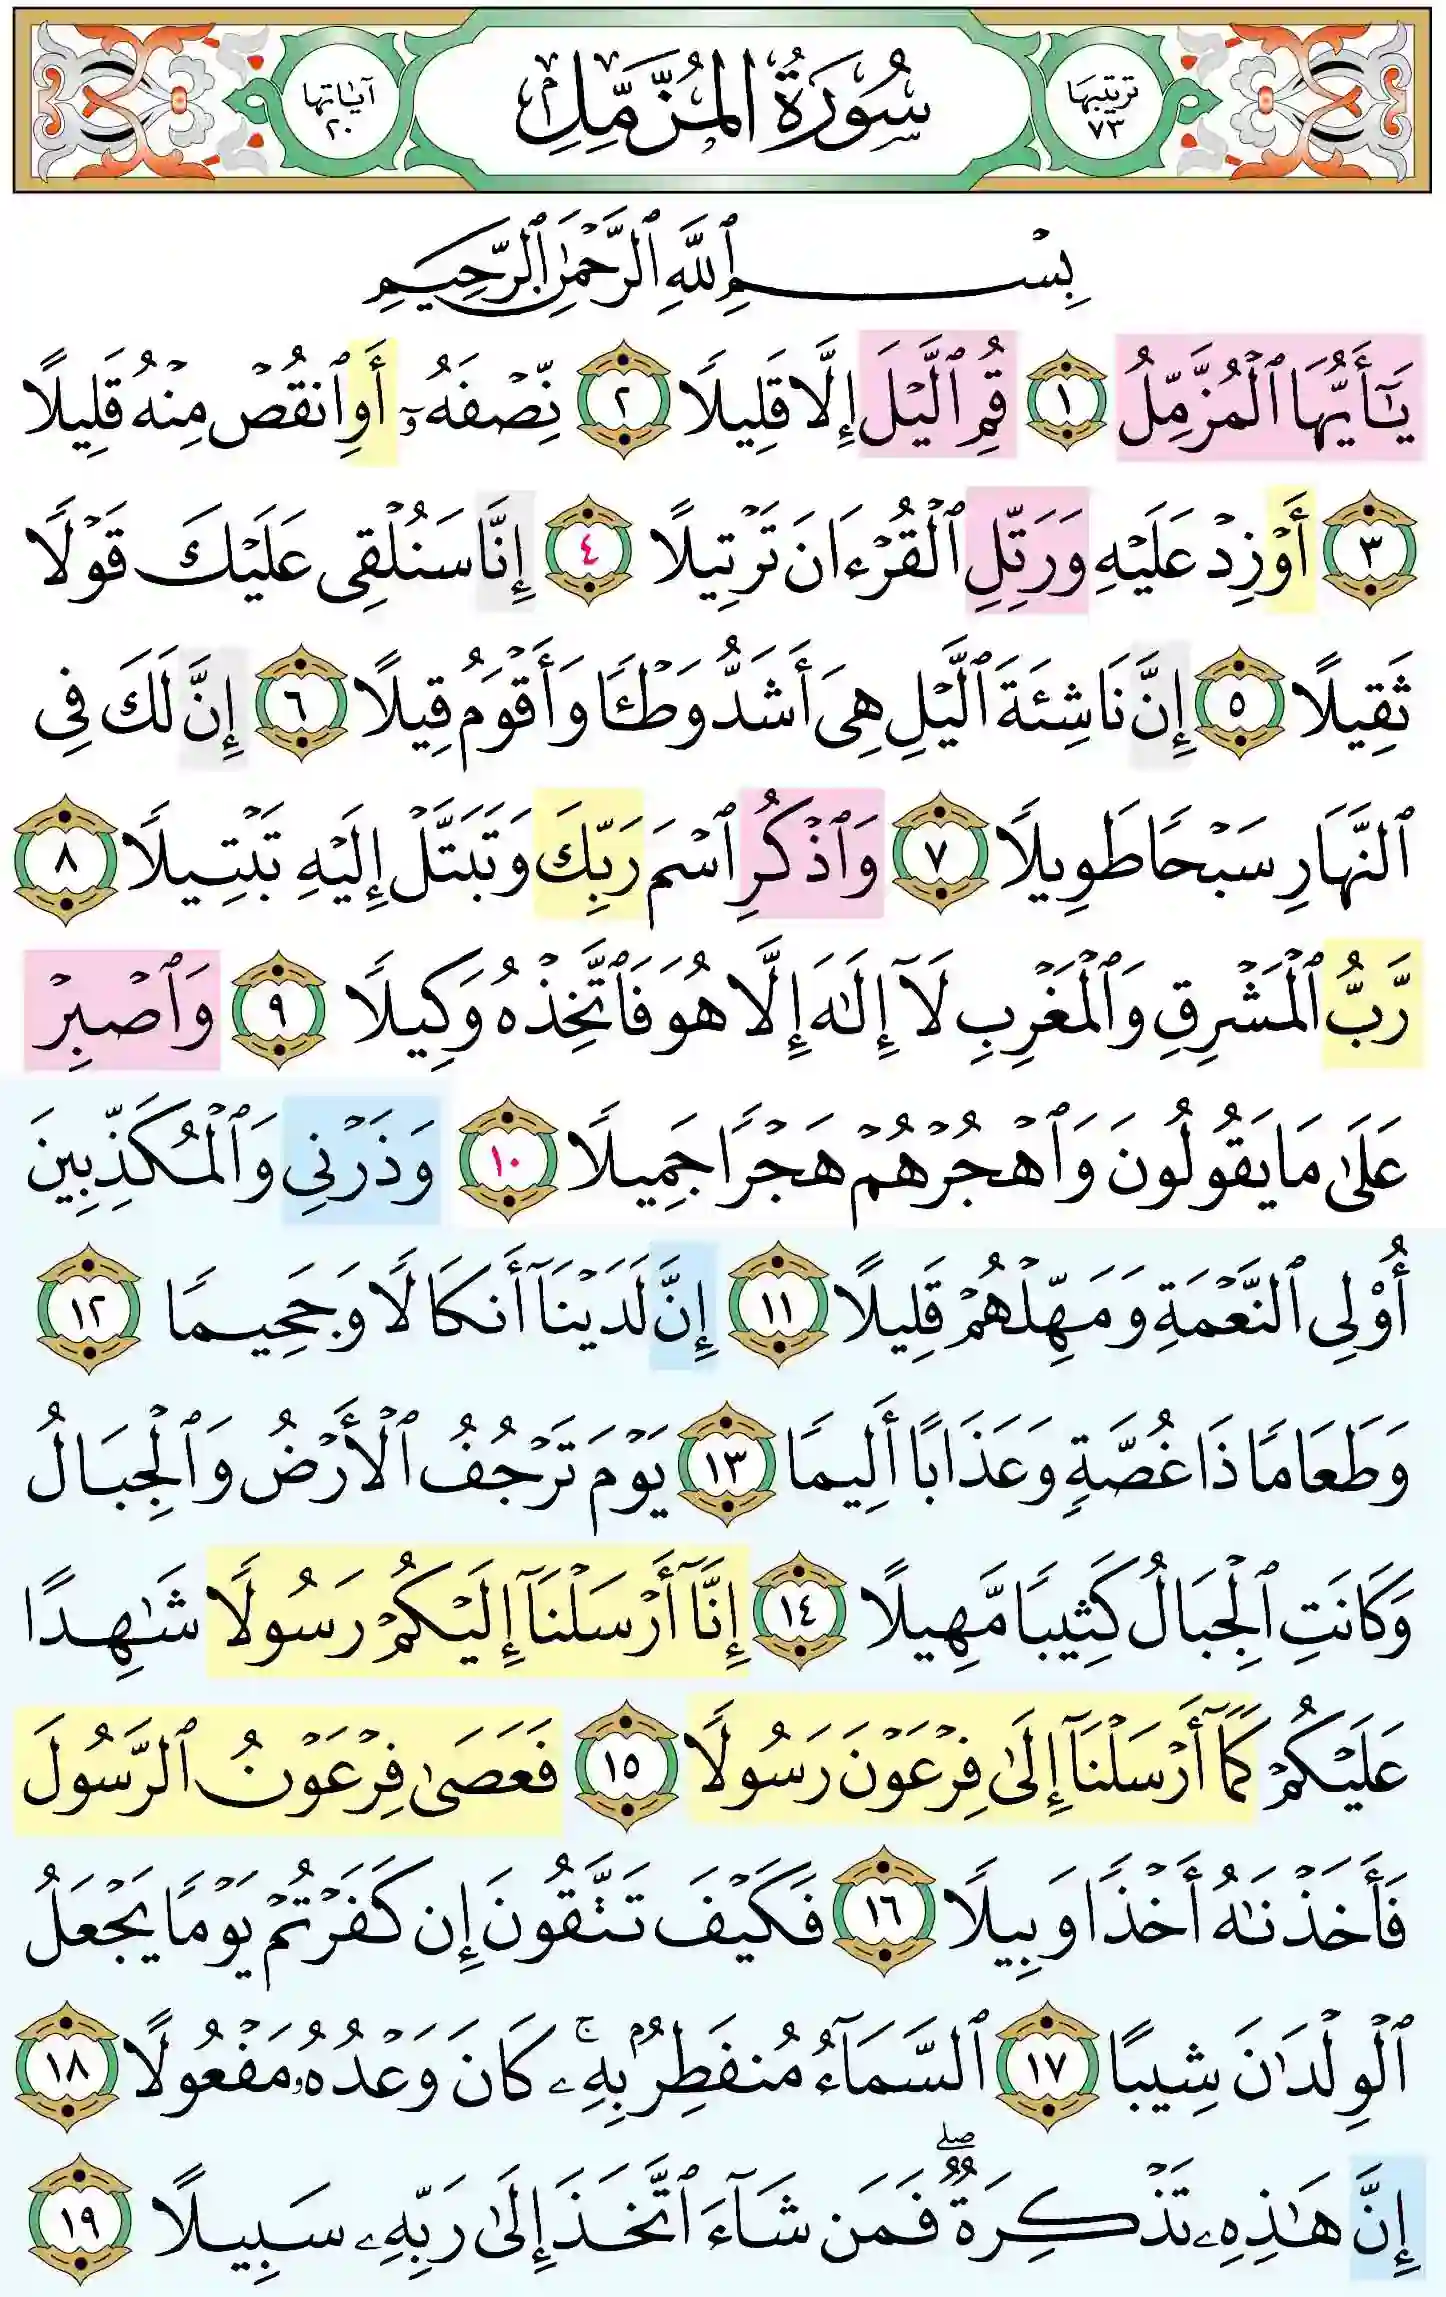 ترتيبها ٧٣ سُورَةُ المُزَّمِّلِ آيَاتها ٢٠
بِسْمِ ٱللَّهِ ٱلرَّحْمَٰنِ ٱلرَّحِيمِ
يَٰٓأَيُّهَا ٱلْمُزَّمِّلُ ١ قُمِ ٱلَّيْلَ إِلَّا قَلِيلًا ٢ نِّصْفَهُۥٓ أَوِ ٱنقُصْ مِنْهُ قَلِيلًا
٣ أَوْ زِدْ عَلَيْهِ وَرَتِّلِ ٱلْقُرْءَانَ تَرْتِيلًا ٤ إِنَّا سَنُلْقِى عَلَيْكَ قَوْلًا
ثَقِيلًا ٥ إِنَّ نَاشِئَةَ ٱلَّيْلِ هِىَ أَشَدُّ وَطْـًٔا وَأَقْوَمُ قِيلًا ٦ إِنَّ لَكَ فِى
ٱلنَّهَارِ سَبْحًا طَوِيلًا ٧ وَٱذْكُرِ ٱسْمَ رَبِّكَ وَتَبَتَّلْ إِلَيْهِ تَبْتِيلًا ٨
رَّبُّ ٱلْمَشْرِقِ وَٱلْمَغْرِبِ لَآ إِلَٰهَ إِلَّا هُوَ فَٱتَّخِذْهُ وَكِيلًا ٩ وَٱصْبِرْ
عَلَىٰ مَا يَقُولُونَ وَٱهْجُرْهُمْ هَجْرًا جَمِيلًا ١٠ وَذَرْنِى وَٱلْمُكَذِّبِينَ
أُو۟لِى ٱلنَّعْمَةِ وَمَهِّلْهُمْ قَلِيلًا ١١ إِنَّ لَدَيْنَآ أَنكَالًا وَجَحِيمًا ١٢
وَطَعَامًا ذَا غُصَّةٍ وَعَذَابًا أَلِيمًا ١٣ يَوْمَ تَرْجُفُ ٱلْأَرْضُ وَٱلْجِبَالُ
وَكَانَتِ ٱلْجِبَالُ كَثِيبًا مَّهِيلًا ١٤ إِنَّآ أَرْسَلْنَآ إِلَيْكُمْ رَسُولًا شَٰهِدًا
عَلَيْكُمْ كَمَآ أَرْسَلْنَآ إِلَىٰ فِرْعَوْنَ رَسُولًا ١٥ فَعَصَىٰ فِرْعَوْنُ ٱلرَّسُولَ
فَأَخَذْنَٰهُ أَخْذًا وَبِيلًا ١٦ فَكَيْفَ تَتَّقُونَ إِن كَفَرْتُمْ يَوْمًا يَجْعَلُ
ٱلْوِلْدَٰنَ شِيبًا ١٧ ٱلسَّمَآءُ مُنفَطِرٌۢ بِهِۦ ۚ كَانَ وَعْدُهُۥ مَفْعُولًا ١٨
إِنَّ هَٰذِهِۦ تَذْكِرَةٌ ۖ فَمَن شَآءَ ٱتَّخَذَ إِلَىٰ رَبِّهِۦ سَبِيلًا ١٩